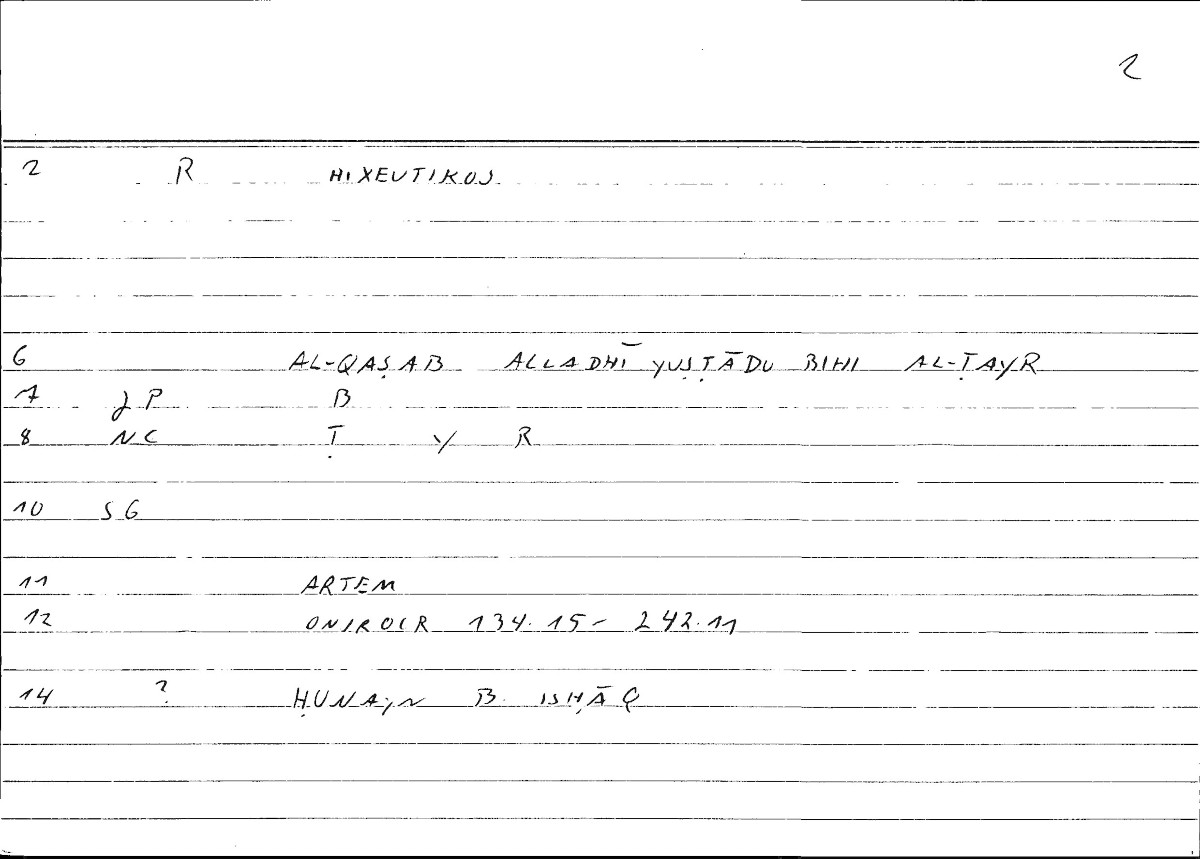 2
2 R HIXEUTIKOS
6 AL-QAṢAB ALLADHĪ YUṢṬĀDU BIHI AL-ṬAYR
7 JP B
8 NC Ṭ Y R
10 SG
11 ARTEM
12 ONIROCR 134.15- 242.11
14 ? ḤUNAyN B. ISḤĀQ